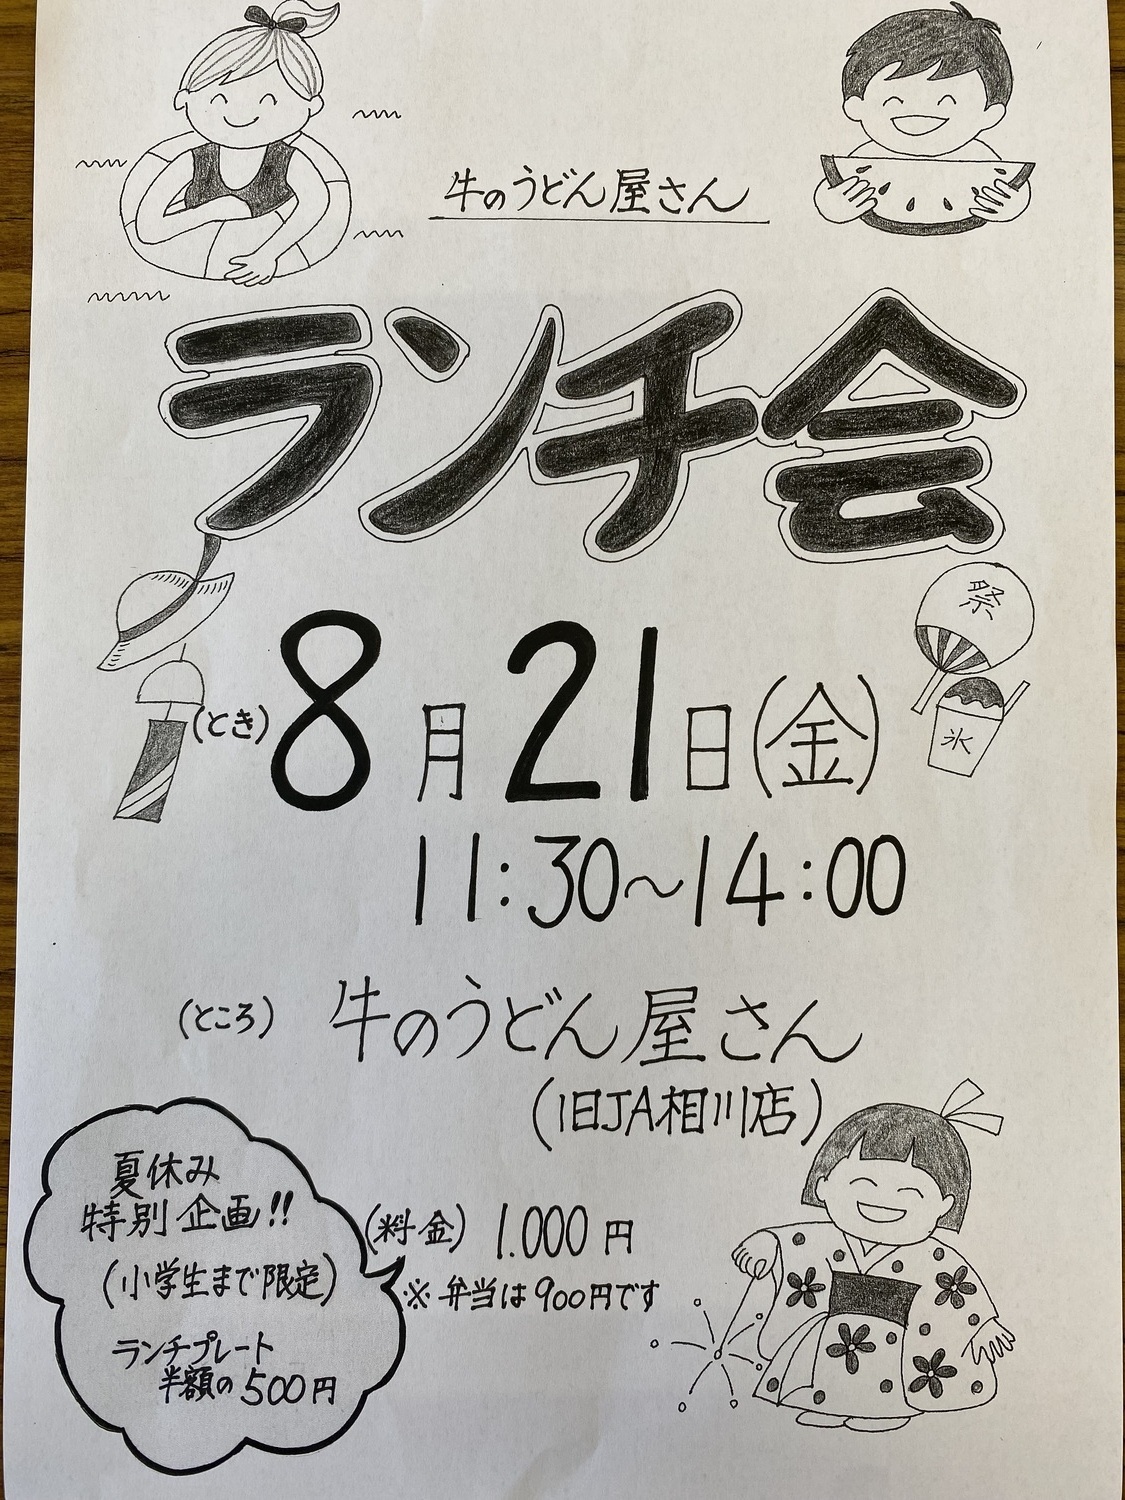 牛のうどん屋さん
ランチ会
祭
(とき) 8月21日(金)
氷
11:30〜14:00
(ところ) 牛のうどん屋さん
(旧JA相川店)
夏休み
特別企画!!
(小学生まで限定)
ランチプレート
半額の500円
(料金) 1.000円
※弁当は900円です